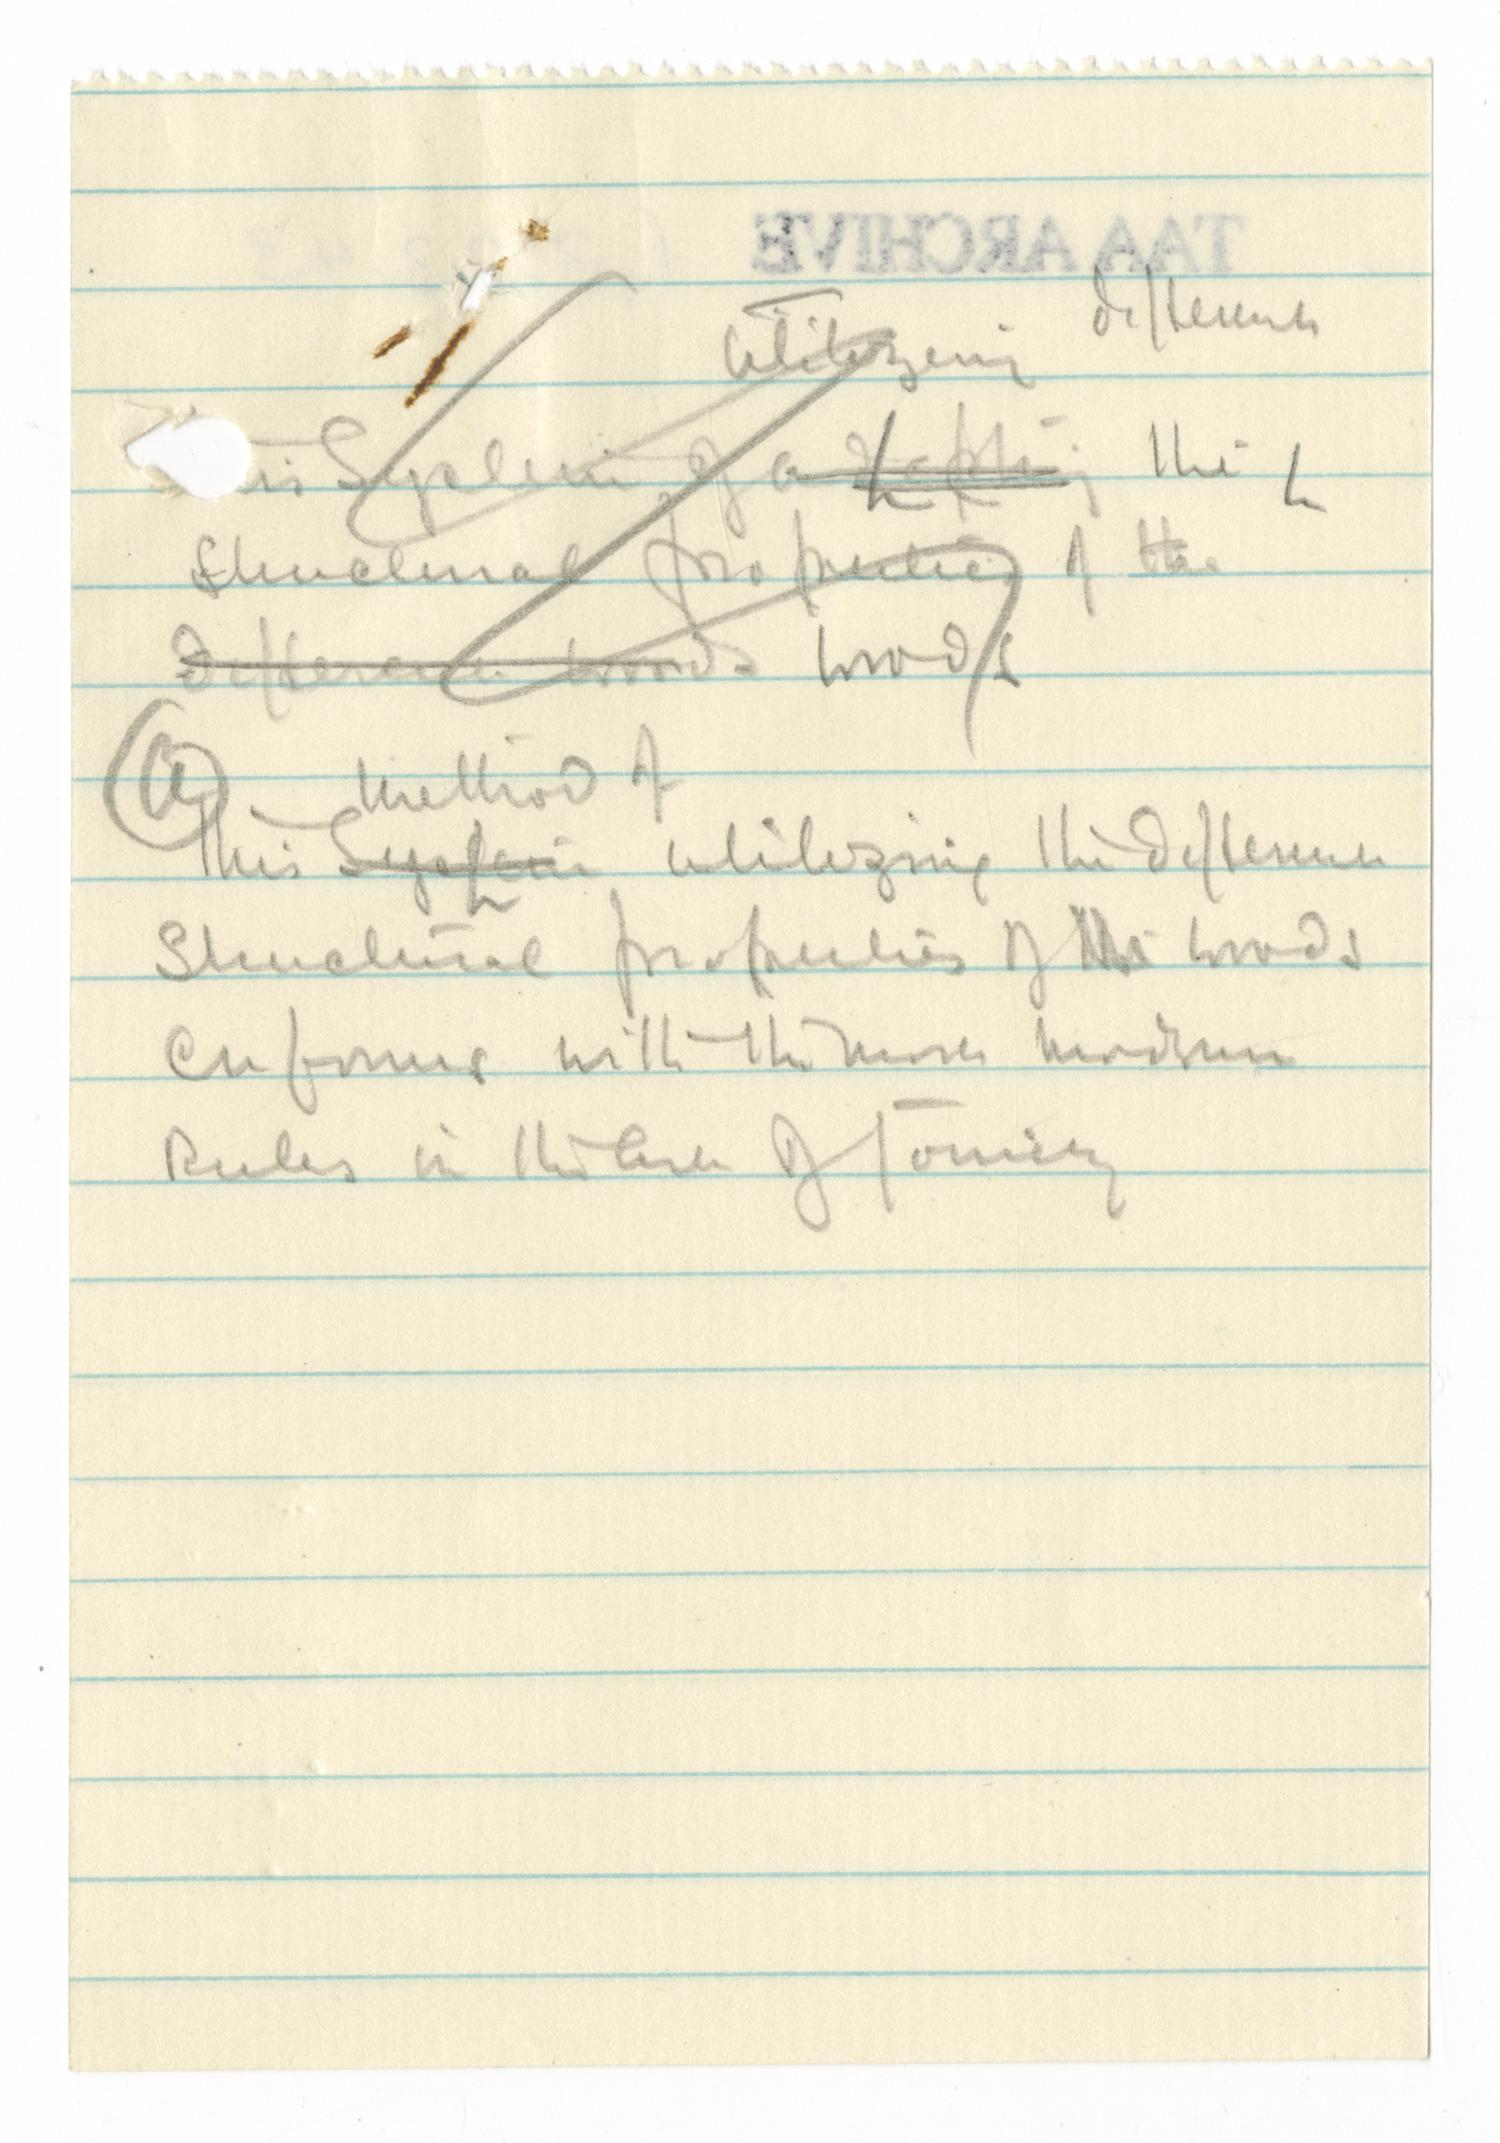 TAA ARCHIVE
utilizing different
this System of adapting the
Structural properties of the
different woods woods
(A) Method of
This System utilizing the different
Structural properties of the woods
conforms with the more modern
Rules in the of